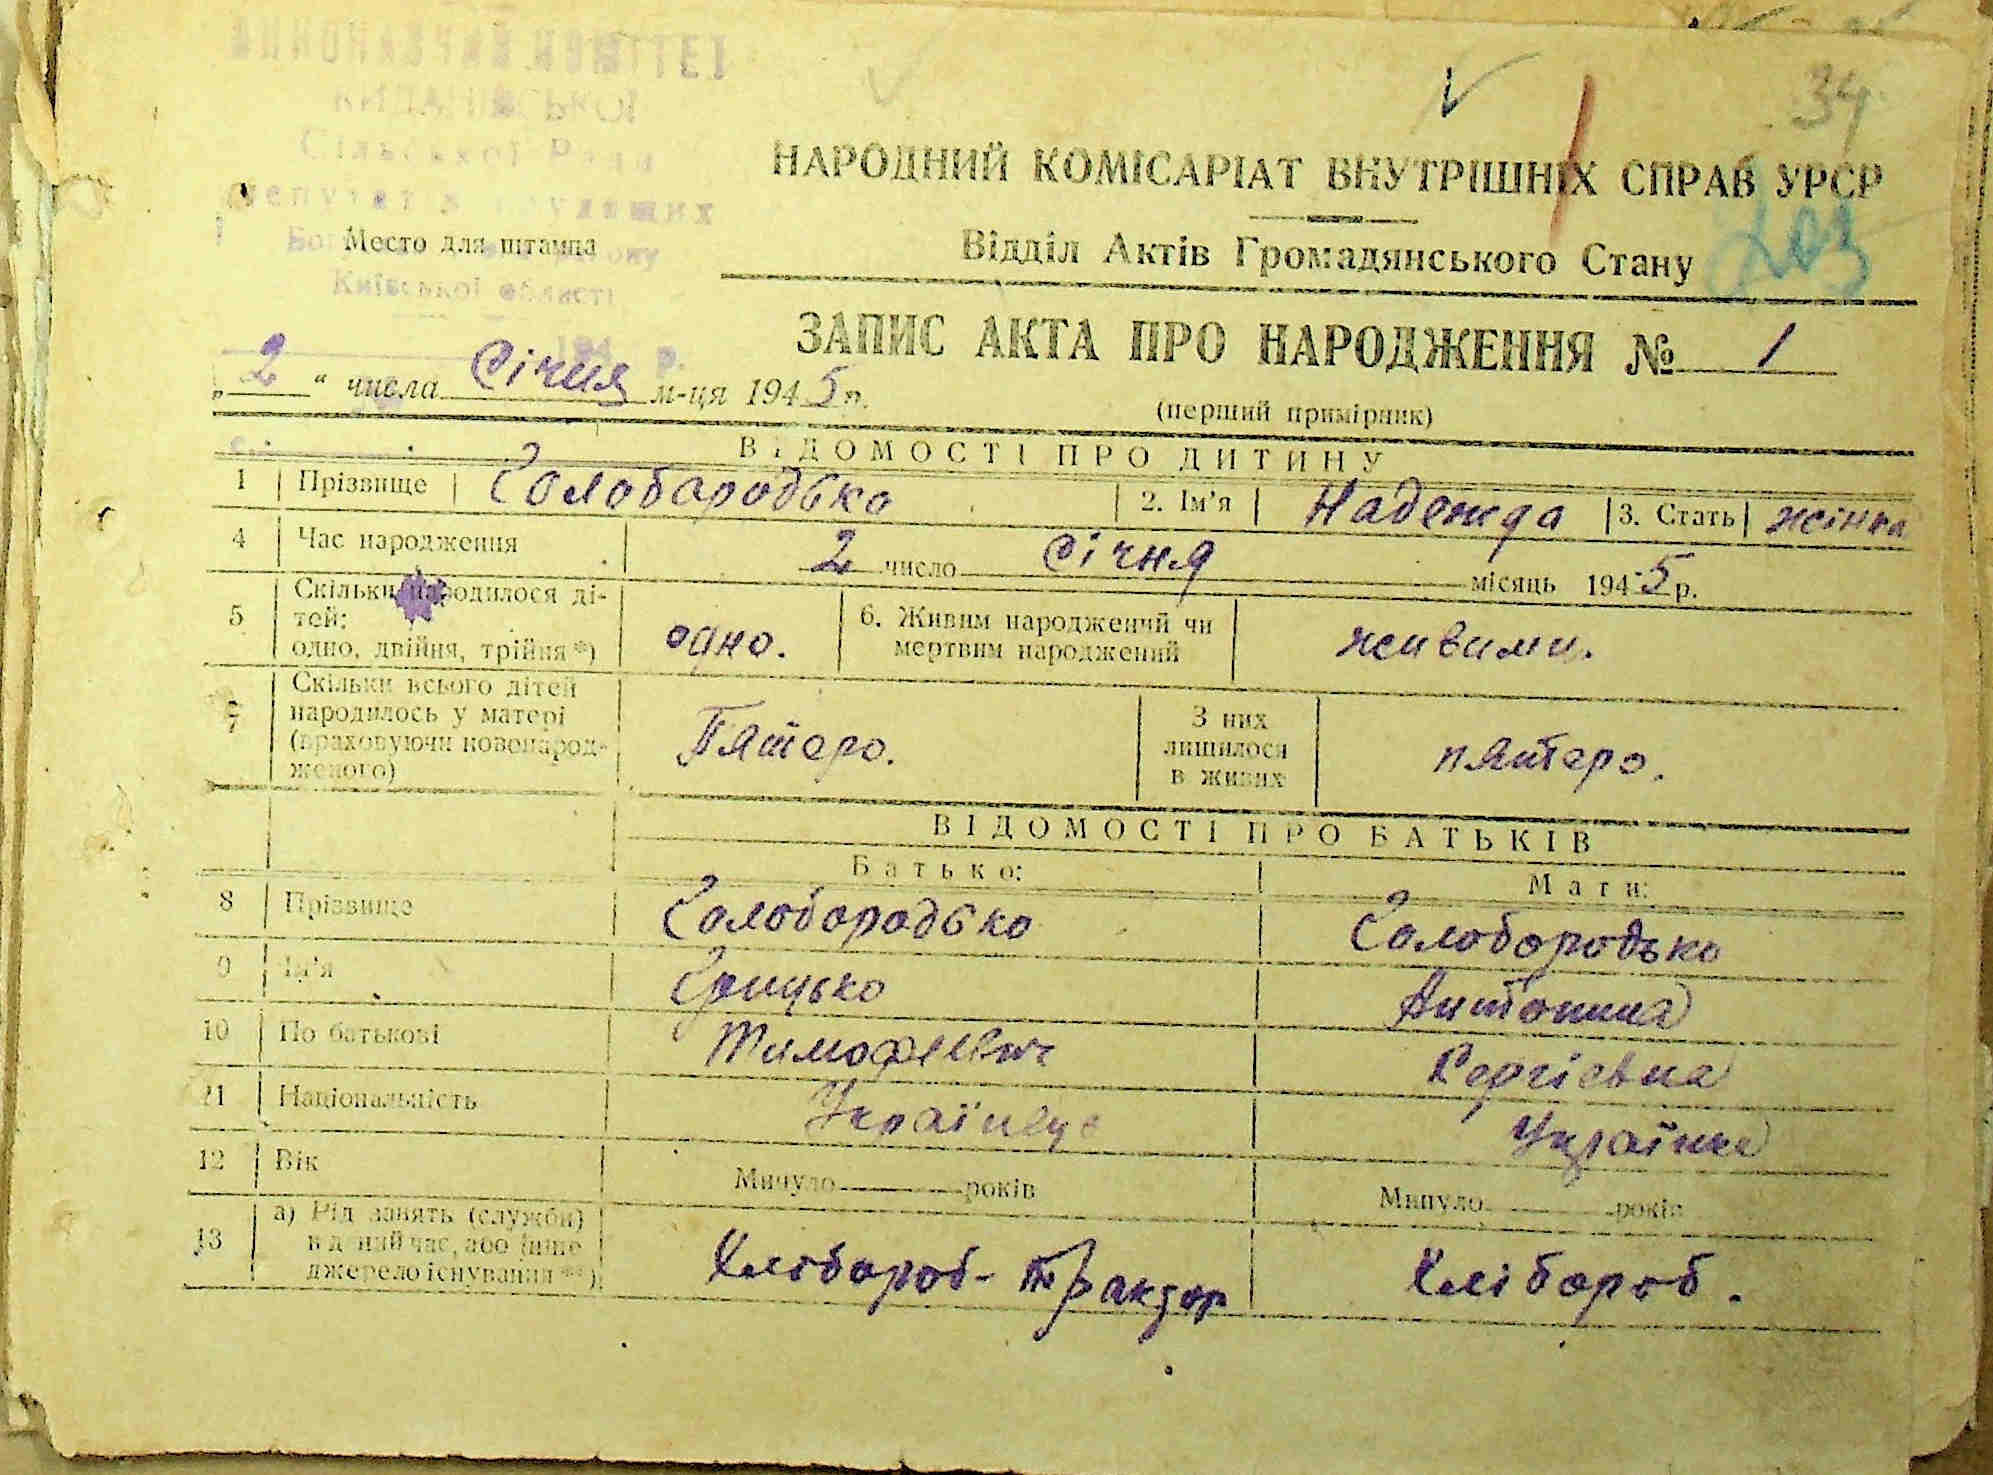 34
НАРОДНИЙ КОМІСАРІАТ ВНУТРІШНІХ СПРАВ УРСР
Сільської Ради
Место для штампа
Київської області
Відділ Актів Громадянського Стану
203
ЗАПИС АКТА ПРО НАРОДЖЕННЯ № 1
„2“ числа Січня м-ця 1945 р.
(перший примірник)
ВІДОМОСТІ ПРО ДИТИНУ
1 Прізвище Голобародько 2. Ім'я Надежда 3. Стать жінка
4 Час народження 2 число Січня місяць 1945 р.
5 Скільки народилося ді-
тей:
одно, двійня, трійня *) одно. 6. Живим народжений чи
мертвим народжений живими.
7 Скільки всього дітей
народилось у матері
(враховуючи новонарод-
женого) Пятеро. З них
лишилося
в живих пятеро.
ВІДОМОСТІ ПРО БАТЬКІВ
Батько: Мати:
8 Прізвище Голобородько Голобородько
9 Ім'я Грицько Антонина
10 По батькові Тимофеевич Сергієвна
11 Національність Українець Українка
12 Вік Минуло років Минуло років
13 а) Рід занять (служби)
в даний час, або інше
джерело існування **) Хлібороб - трактор Хлібороб.